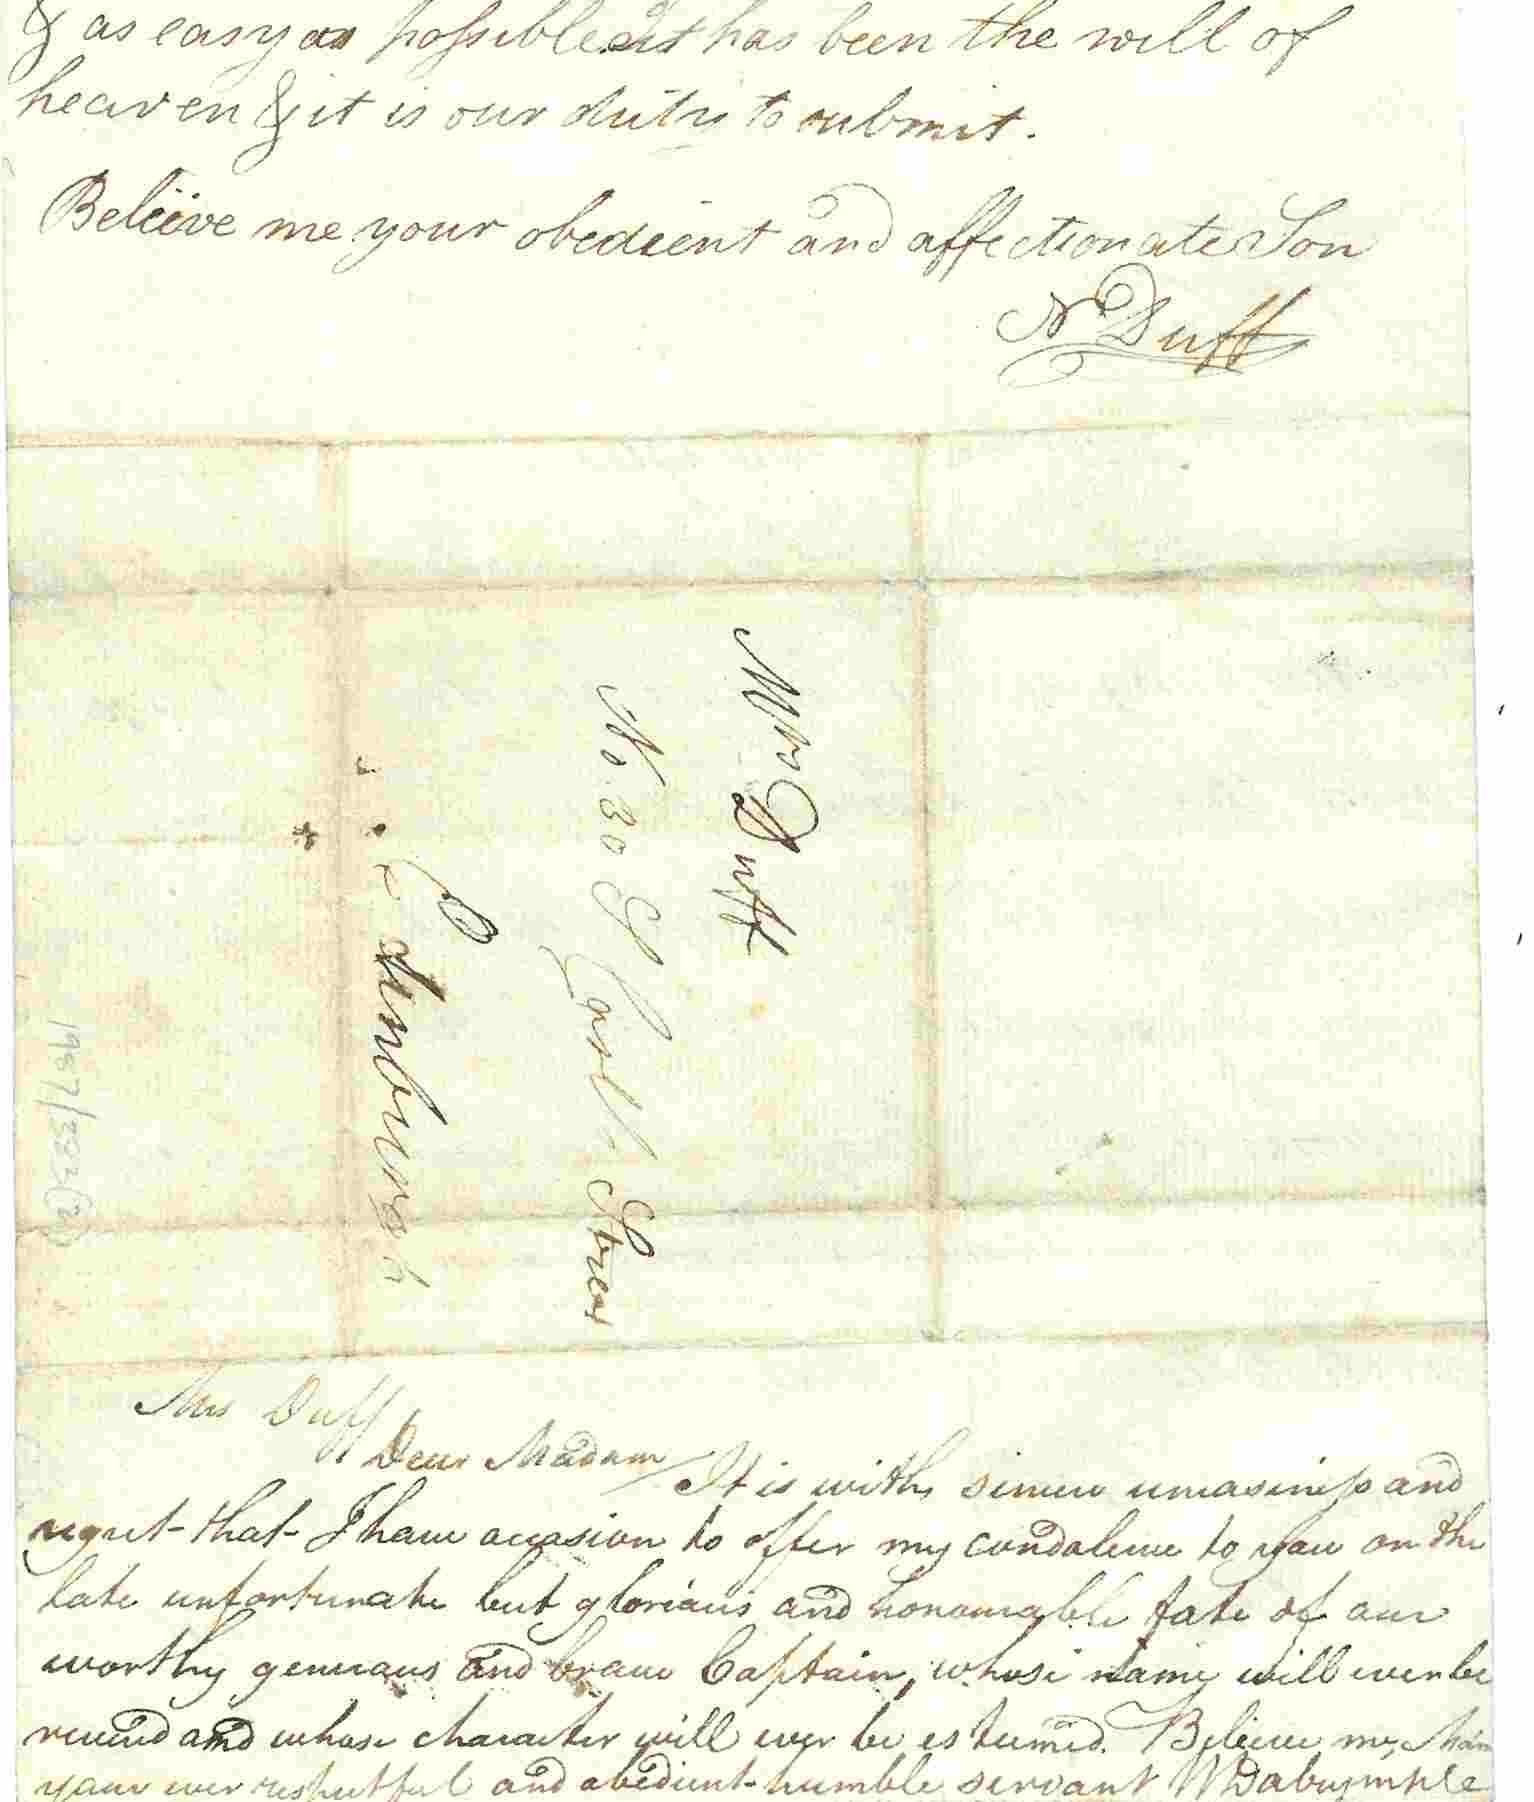 & as easy as possible it has been the will of
heaven & it is our duty to submit.
Beleive me your obedient and affectionate Son
N Duff
Mrs Duff
No. 30 St Castle Street
Edinburgh
1987/393(2)
Mrs Duff
Dear Madam / It is with sincere uneasiness and
regret that I have occasion to offer my condolence to you on the
late unfortunate but glorious and honourable fate of our
worthy generous and brave Captain, whose name will ever be
revered and whose character will ever be esteemed. Believe me, Mam
your ever respectful and obedient humble servant W Dalrymple